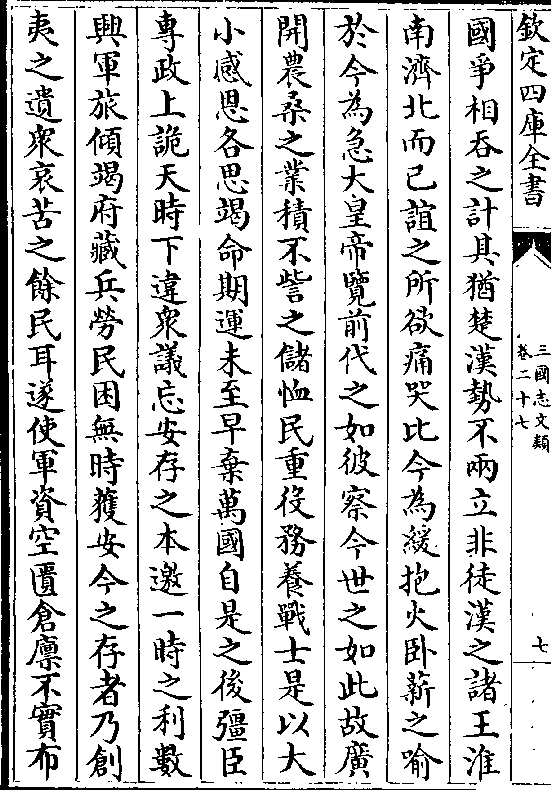 欽定四庫全書
三國志文類
卷二十七
七
國爭相吞之計其猶楚漢勢不兩立非徒漢之諸王淮
南濟北而已誼之所欲痛哭比今為緩抱火卧薪之喻
於今為急大皇帝覽前代之如彼察今世之如此故廣
開農桑之業積不訾之儲恤民重役務養戰士是以大
小感恩各思竭命期運未至早棄萬國自是之後彊臣
專政上詭天時下違衆議忘安存之本邀一時之利數
興軍旅傾竭府藏兵勞民困無時獲安今之存者乃創
夷之遺衆哀苦之餘民耳遂使軍資空匱倉廪不實布